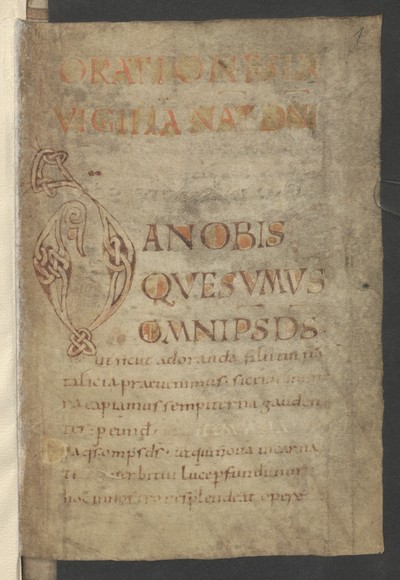 1
ORATIONES IN
VIGILIA NAT DNI
DANOBIS
QVESUMUS
OMNIPS DS
ut sicut adoranda filii tui na
talicia praevenimus sic
capiamus sempiterna gauden
tes
Da qs omps ds ut qui nova incarna
ti verbi tui luce perfundimur
hoc in nostro resplendeat opere